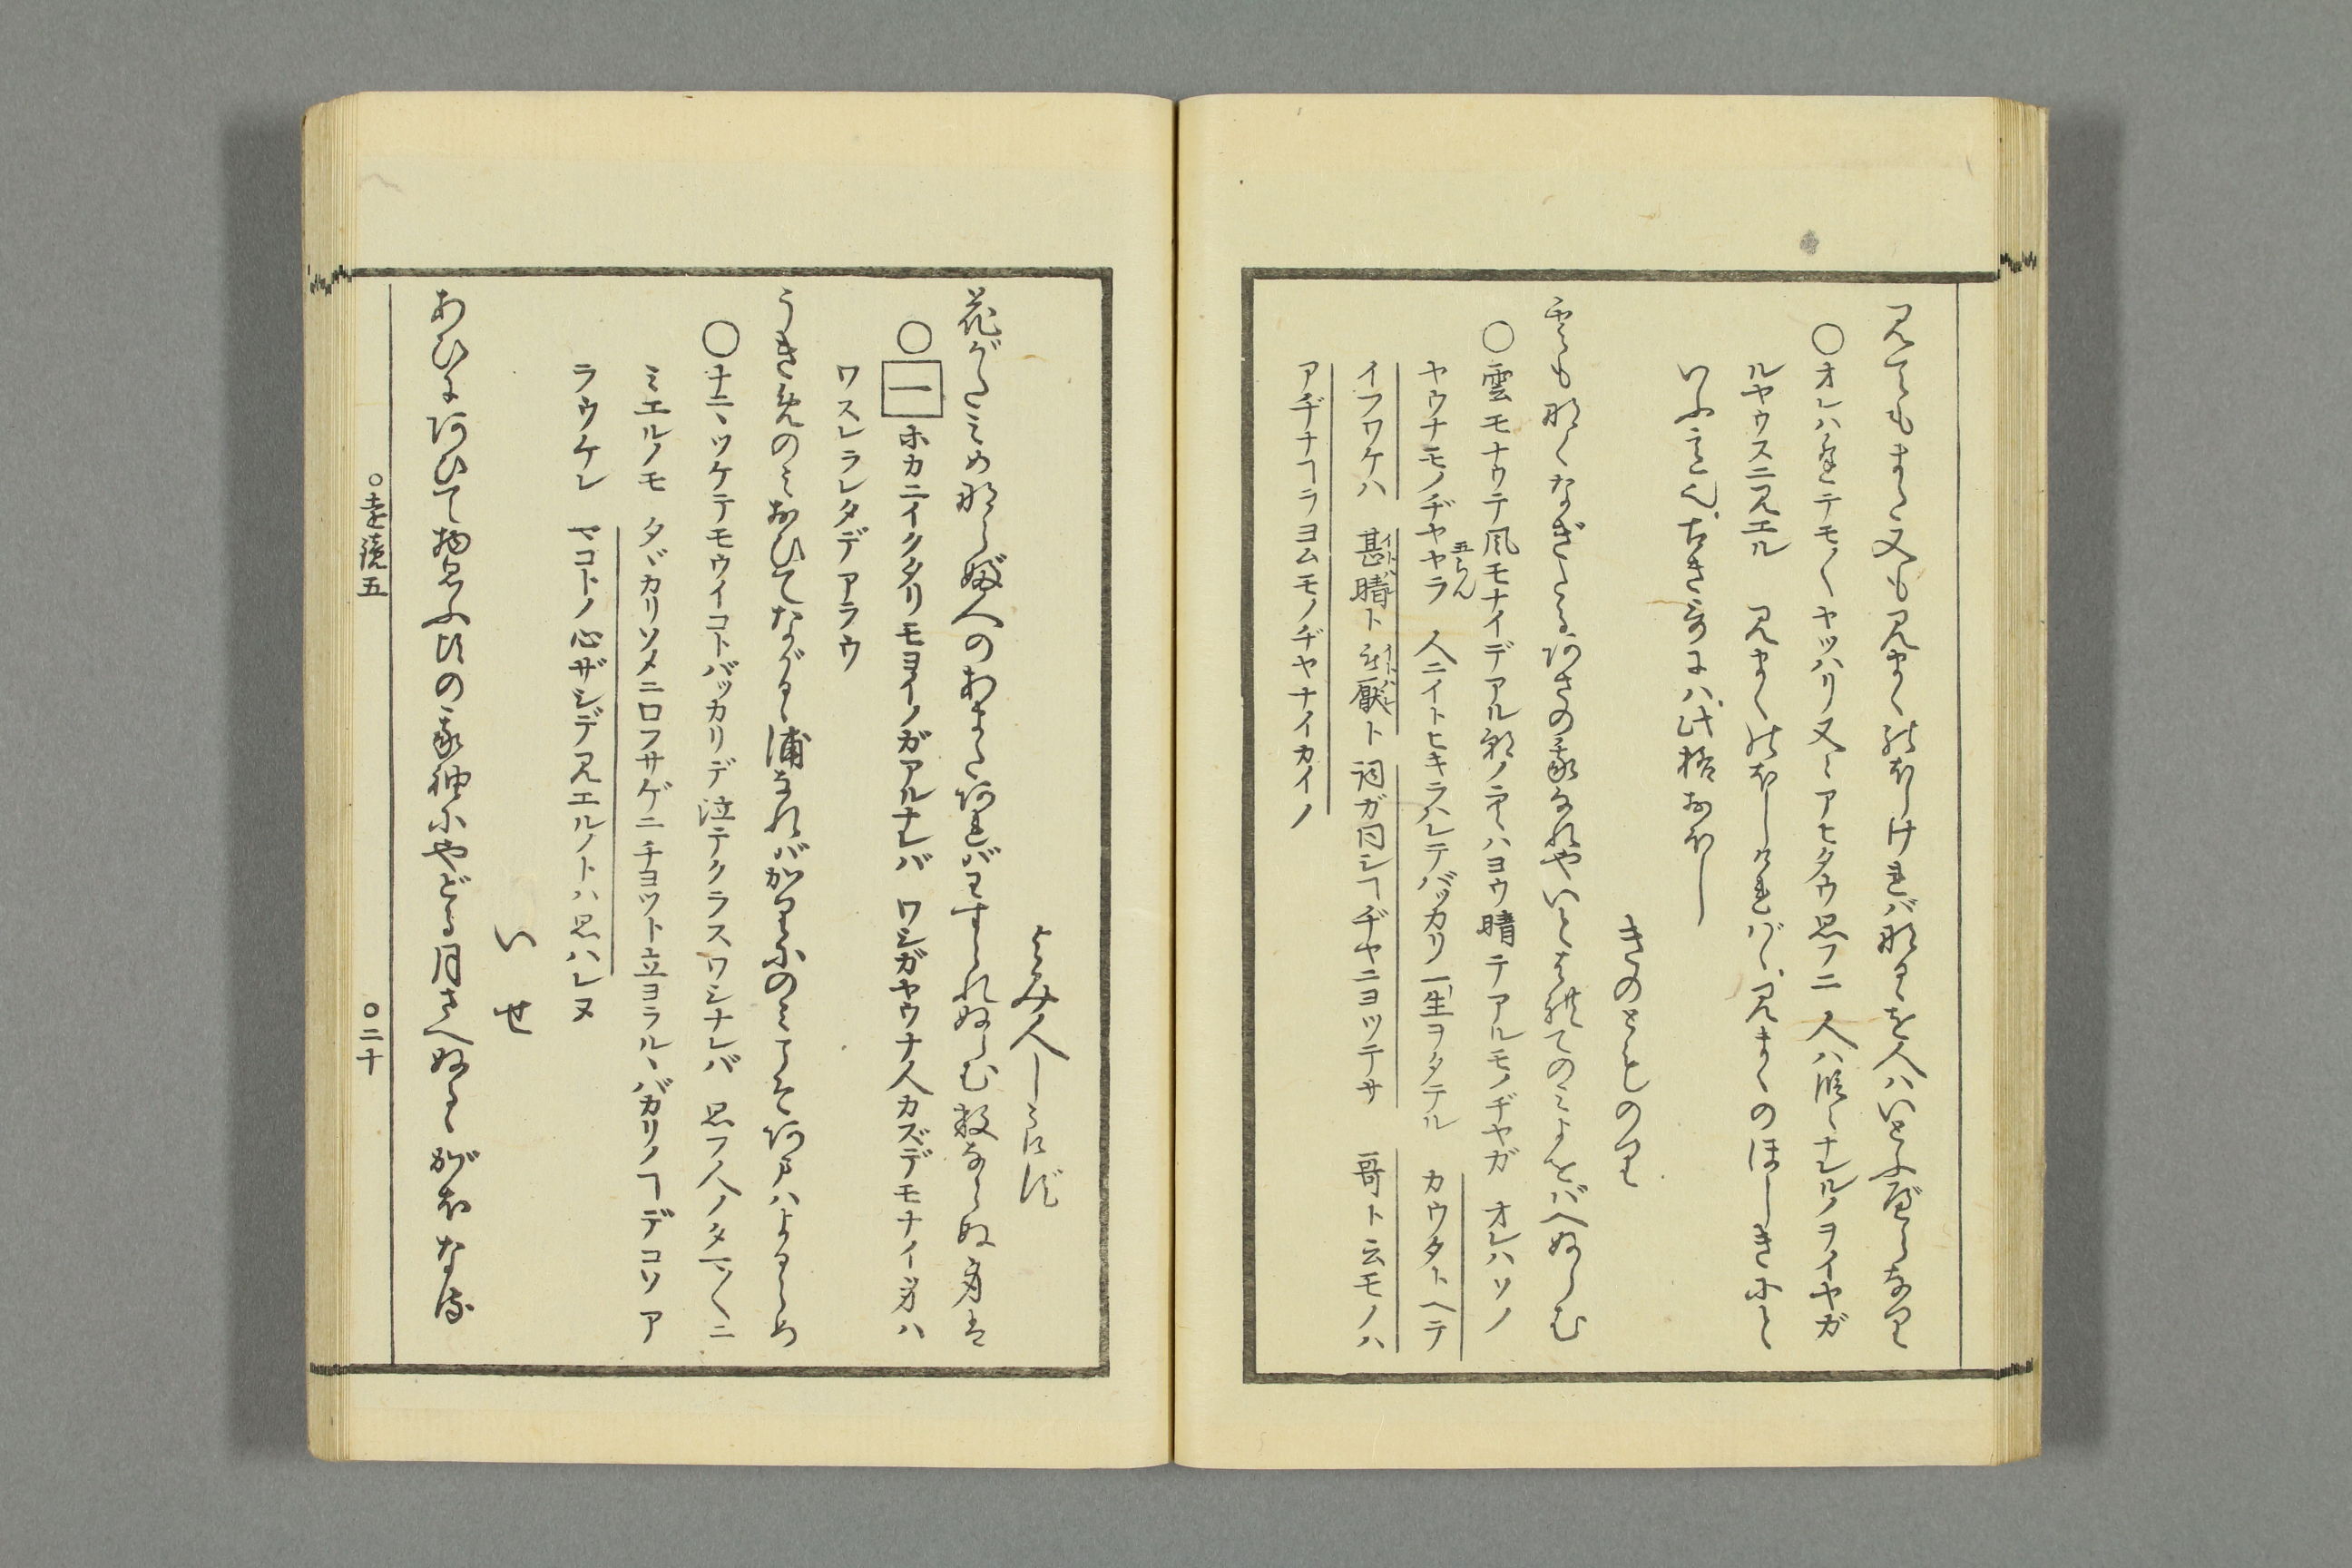 見てもまた又も見まくのほしければなるゝを人はいとふべらなり
○オレハ逢テモ〳〵ヤッハリ又〻アヒタウ思フニ 人ハ順〻ナレルノヲイヤガ
ルヤウスニ見エル 見まくのほしければゝ、見まくのほしきにと
いふ意也、古き哥にハ、此格おほし
きのとものり
雲もなくなぎたるあさの我なれやいとはれてのみよをばへぬらむ
○雲モナウテ風モナイデアル朝ノ空ハヨウ晴テアルモノヂヤガ オレハソノ
ヤウナモノヂヤヤラ 人ニイトヒキラハレテバッカリ一生ヲタテル カウタトヘテ
イフワケハ 甚晴ト被厭ト詞ガ同シヿヂヤニヨッテサ 哥ト云モノハ
アヂナヿヲヨムモノヂヤナイカイノ
よみ人しらず
花がたみめならぶ人のあまたあればわすられぬらむ数ならぬ身は
○一ホカニイクタリモヨイノガアルナレバ ワシガヤウナ人カズデモナイ身ハ
ワスレラレタデアラウ
うきめのみおひてながるゝ浦なればかりにのみこそあまはよるらめ
○ナニヽツケテモウイコトバッカリデ泣テクラスワシナレバ 思フ人ノタマ〳〵ニ
ミエルノモ タヾカリソメニロフサゲニチヨット立ヨラルヽバカリノヿデコソア
ラウケレ マコトノ心ザシデ見エルノトハ思ハレヌ
いせ
あひにあひて物思ふ比の我袖にやどる月さへぬるゝがほなる
○遠鏡五
○二十